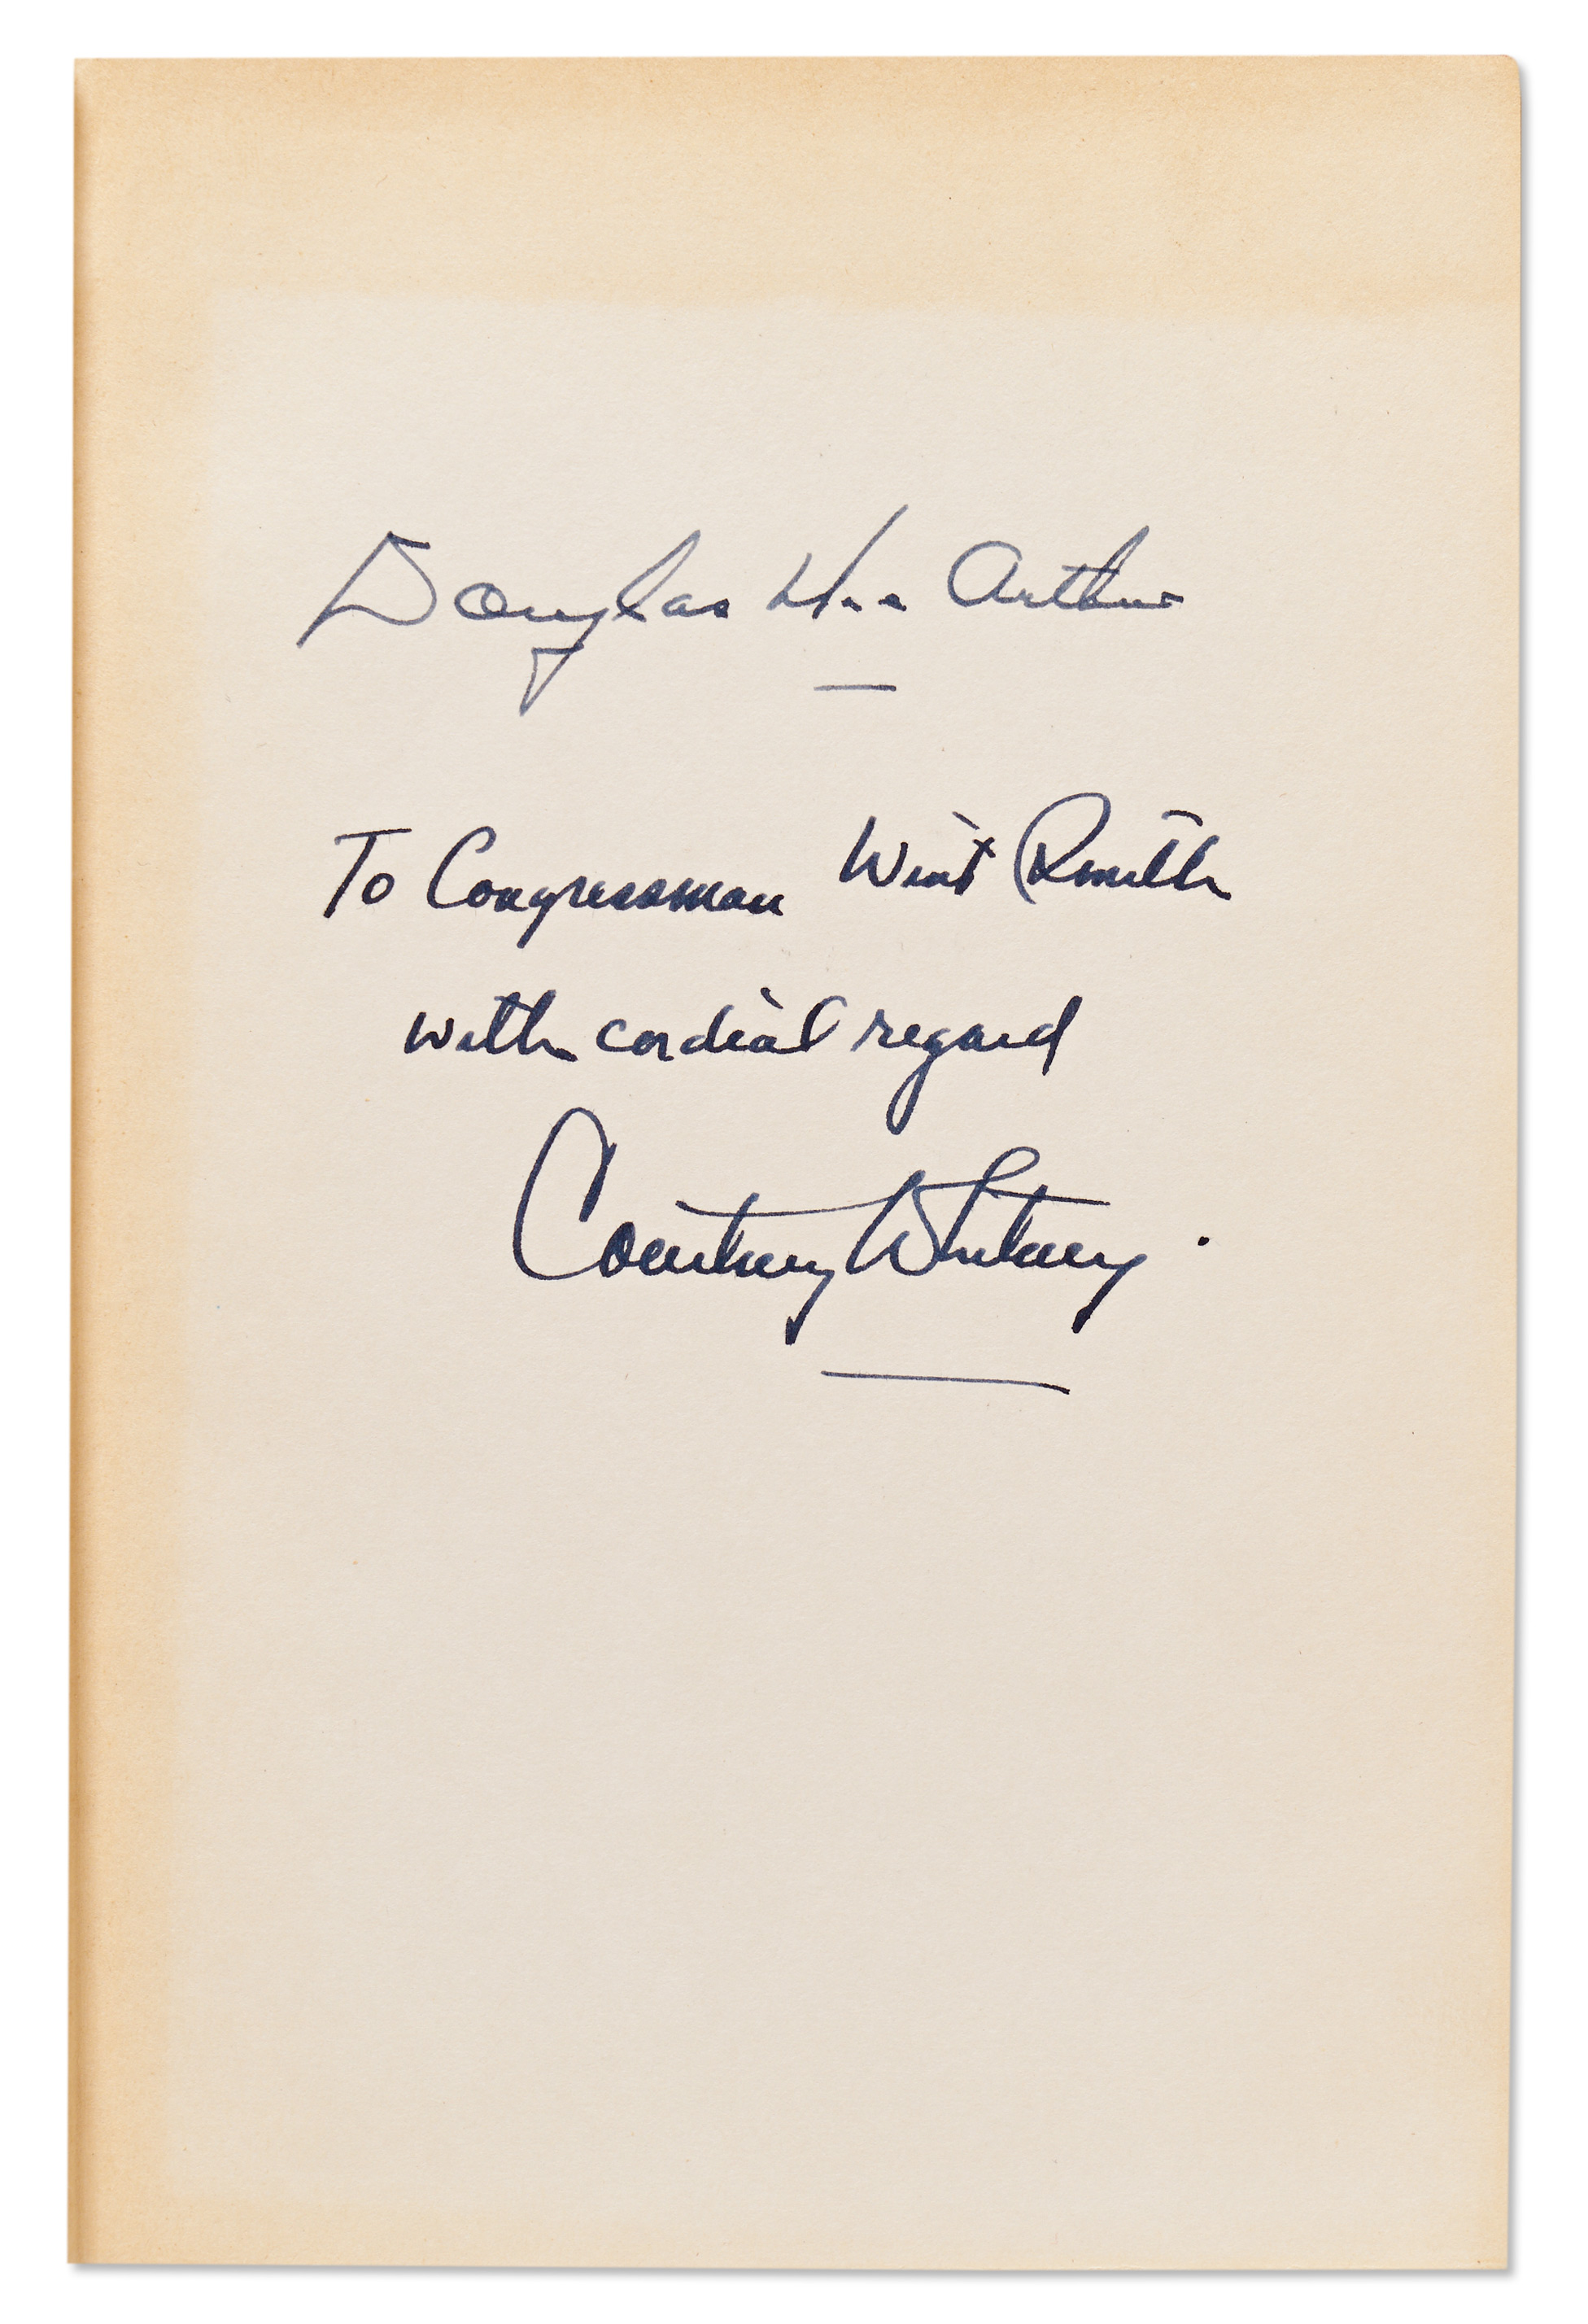 Douglas MacArthur
To Congressman Wint Smith
with cordial regard
Courtney Whitney.